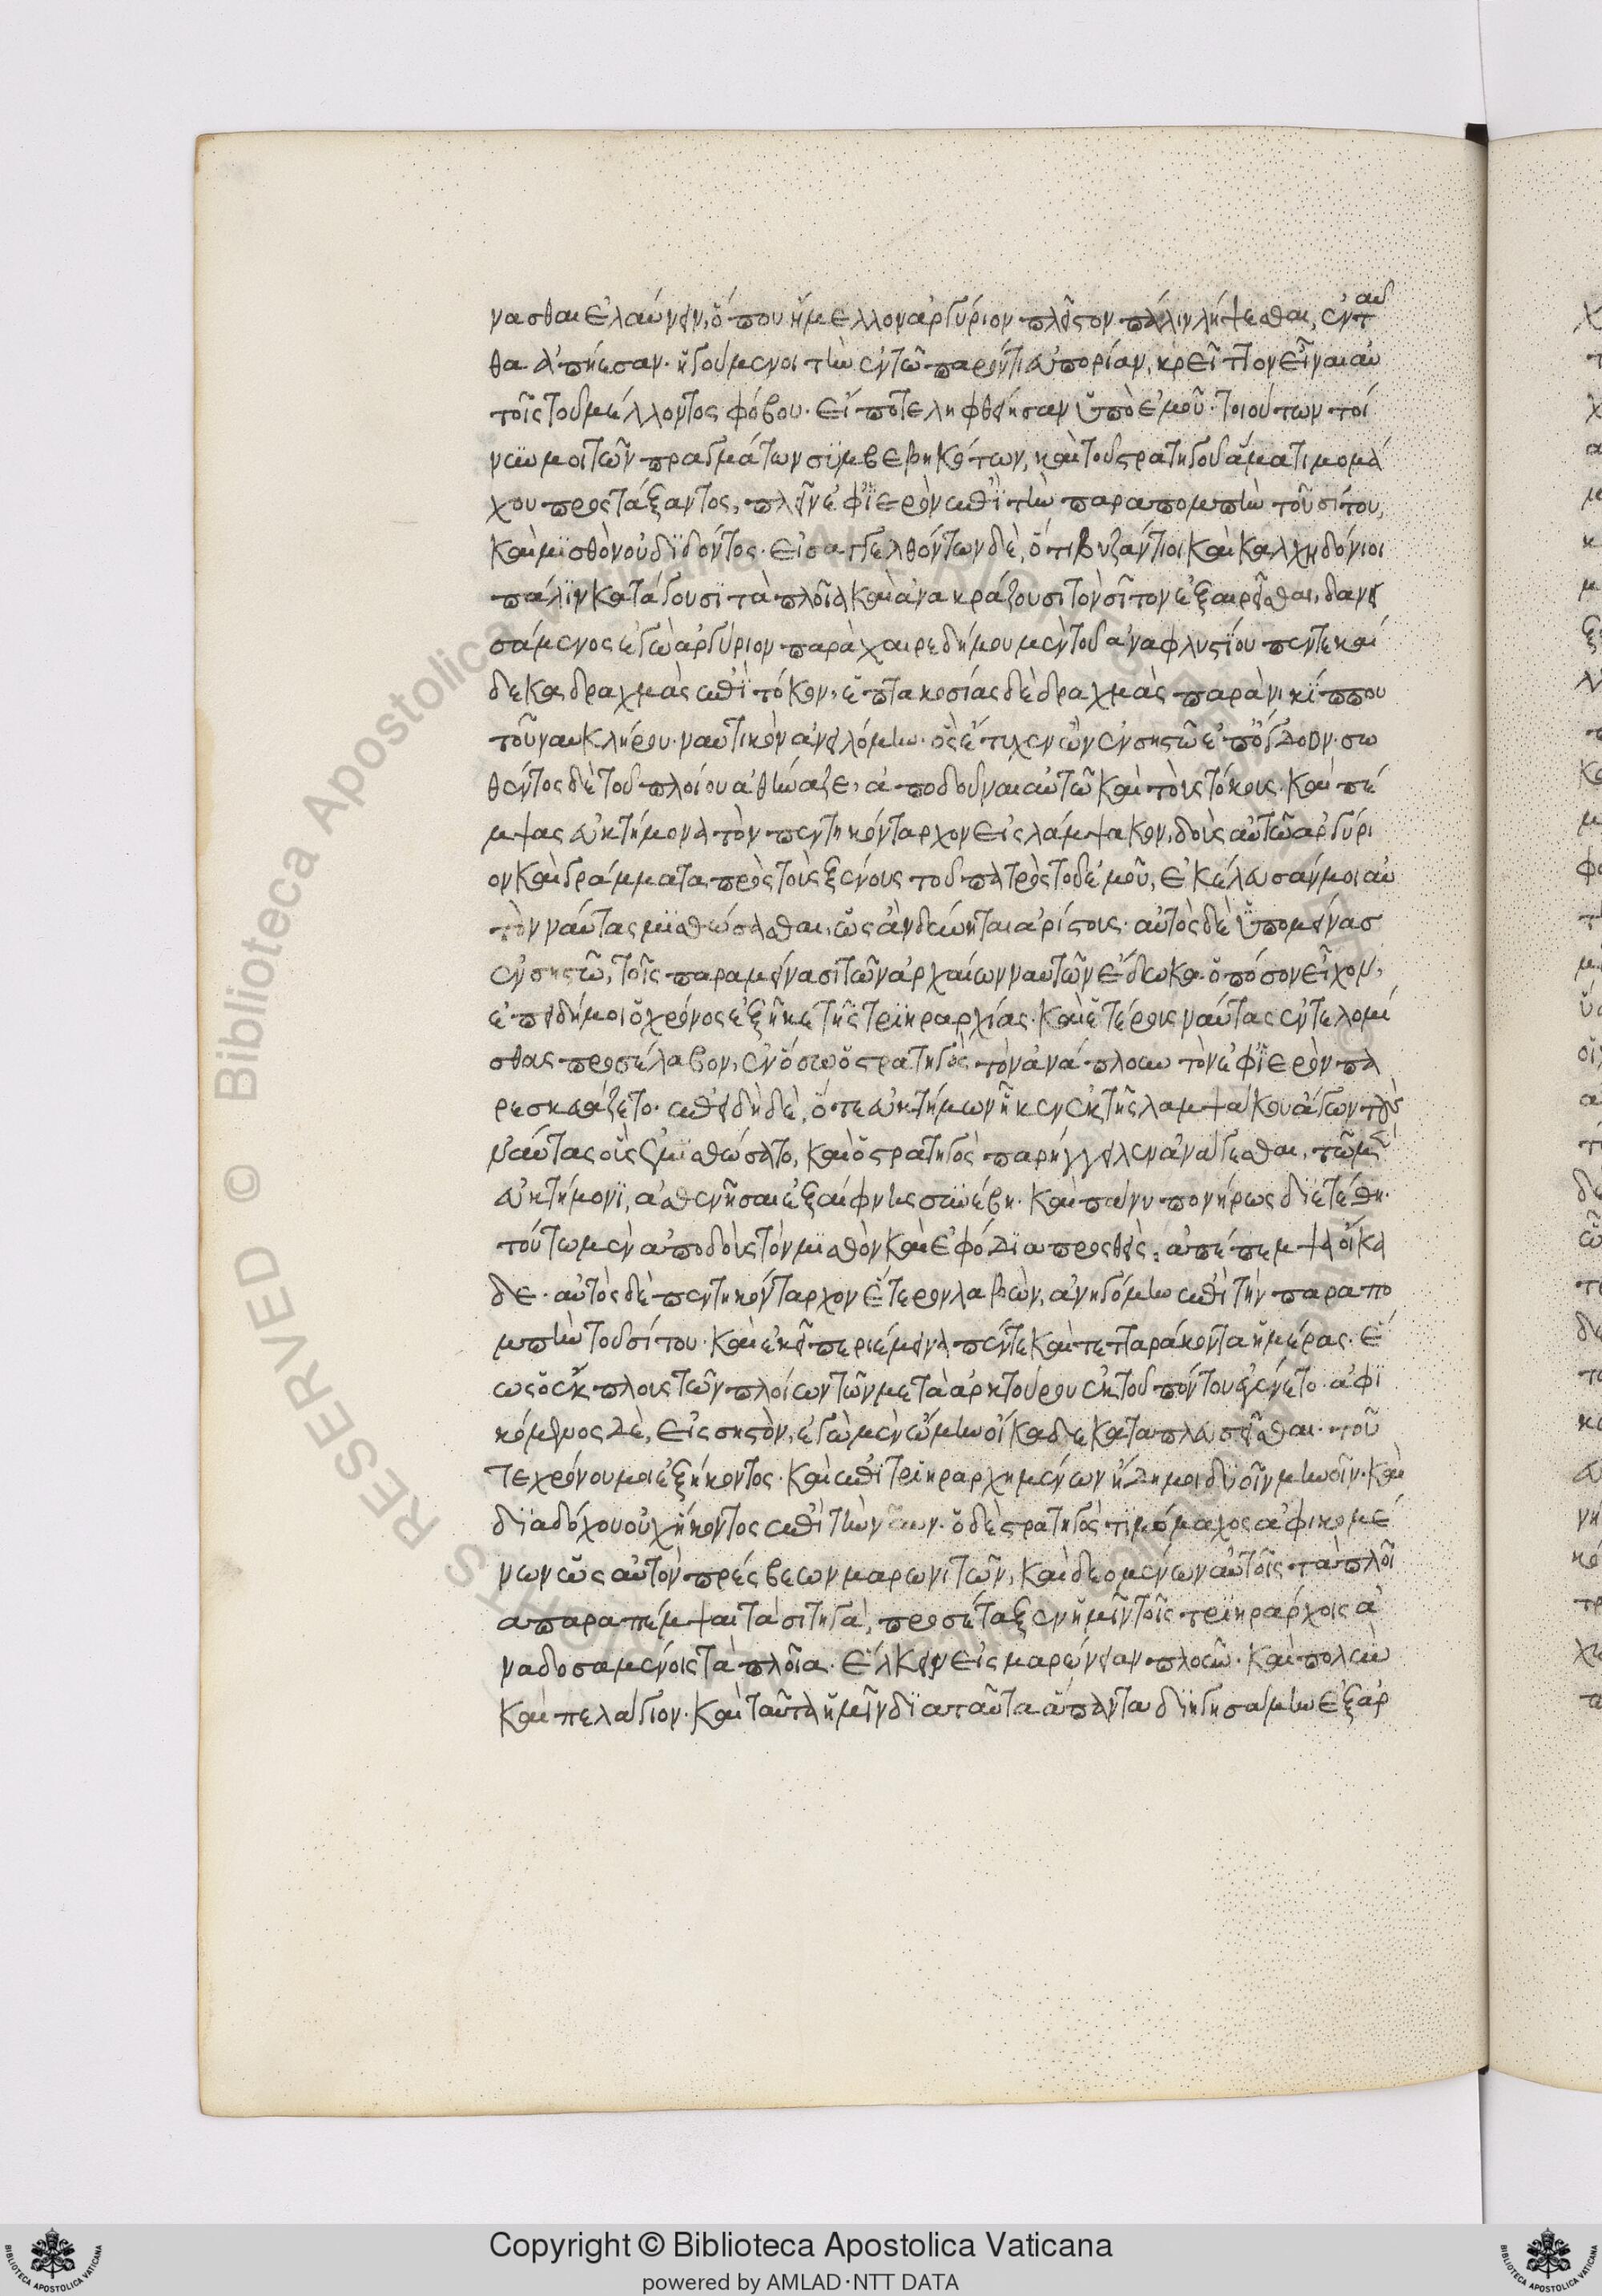 νασθαι ἐλαύνειν, ὅπου ἤμελλον ἀργύριον πλεῖστον πάλιν λήψεσθαι, ἐνταῦ
θα ἀπῄεσαν· ἡγούμενοι τὴν ἐν τῶ παρόντι ἀπορίαν, κρεῖττον εἶναι αὐ
τοῖς τοῦ μέλλοντος φόβου· εἴ ποτε ληφθείησαν ὑπὸ ἐμοῦ· τοιούτων τοί
νυν μοι τῶν πραγμάτων συμβεβηκότων, καὶ τοῦ στρατηγοῦ ἅμα τιμομά
χου προστάξαντος, πλεῖν ἐφ ἱερὸν ἐπὶ τὴν παραπομπὴν τοῦ σίτου,
καὶ μισθὸν οὐ διδόντος· εἰσαγγελθόντων δὲ, ὅτι βυζάντιοι καὶ καλχηδόνιοι
πάλιν κατάγουσι τὰ πλοῖα καὶ ἀνακράζουσι τὸν σῖτον ἐξαιρεῖσθαι, δανει
σάμενος ἐγὼ ἀργύριον παρὰ χαιρεδήμου μὲν τοῦ ἀναφλυστίου πεντεκαί
δεκα δραχμὰς ἐπὶ τόκον, ἑπτακοσίας δὲ δραχμὰς παρὰ νικίππου
τοῦ ναυκλήρου· ναυτικὸν ἀνειλόμην· ὃς ἔτυχεν ὢν ἐν σηστῶ ἐπόγδοον· σω
θέντος δὲ τοῦ πλοίου ἀθήναζε, ἀποδοῦναι αὐτῶ καὶ τοὺς τόκους· καὶ πέ
μψας εὐκτήμονα τὸν πεντηκόνταρχον εἰς λάμψακον, δοὺς αὐτῶ ἀργύρι
ον καὶ γράμματα πρὸς τοὺς ξένους τοῦ πατρὸς τοῦ ἐμοῦ, ἐκέλευσάν μοι αὐ
τὸν ναύτας μισθώσασθαι, ὡς ἂν δύνηται ἀρίστους· αὐτὸς δὲ ὑπομείνας
ἐν σηστῶ, τοῖς παραμείνασι τῶν ἀρχαίων ναυτῶν ἔδωκα· ὁπόσον εἶχον,
ἐπειδή μοι ὁ χρόνος ἐξῆκε τῆς τριηραρχίας· καὶ ἑτέρους ναύτας ἐντελομί
σθας προσέλαβον, ἐν ὅσω ὁ στρατηγὸς τὸν ἀνάπλουν τὸν ἐφ ἱερὸν πα
ρεσκευάζετο· ἐπειδὴ δὲ, ὅ τε εὐκτήμων ἧκεν ἐκ τῆς λαμψάκου ἄγων τοὺς
ναύτας οὓς ἐμισθώσατο, καὶ ὁ στρατηγὸς παρήγγειλεν ἀνάγεσθαι, τῶ μὲν
εὐκτήμονι, ἀσθενῆσαι ἐξαίφνης συνέβη· καὶ πάνυ πονήρως διετέθη·
τούτω μὲν ἀποδοὺς τὸν μισθὸν καὶ ἐφόδια προσθεὶς, ἀπέπεμψα οἴκα
δε· αὐτὸς δὲ πεντηκόνταρχον ἕτερον λαβὼν, ἀνηγόμην ἐπὶ τὴν παραπο
μπὴν τοῦ σίτου· καὶ ἐκεῖ περιέμεινα πέντε καὶ τετταράκοντα ἡμέρας· ἕ
ως ὁ ἔκπλους τῶν πλοίων τῶν μετὰ ἀρκτούρου ἐκ τοῦ πόντου ἐγένετο· ἀφι
κόμενος δὲ, εἰς σηστὸν, ἐγὼ μὲν ὤμην οἴκαδε καταπλευσεῖσθαι· τοῦ
τε χρόνου μοι ἐξήκοντος· καὶ ἐπιτριηραρχημένων ἤδη μοι δυοῖν μηνοῖν· καὶ
διαδόχου οὐχ ἥκοντος ἐπὶ τὴν ναῦν· ὁ δὲ στρατηγὸς τιμόμαχος ἀφικομέ
νων ὡς αὐτὸν πρέσβεων μαρωνιτῶν, καὶ δεομένων αὐτοῖς τὰ πλοῖ
α παραπέμψαι τὰ σιτηγὰ, προσέταξεν ἡμῖν τοῖς τριηράρχοις ἀ
ναδησαμένοις τὰ πλοῖα· ἕλκειν εἰς μαρώνειαν πλοῦν· καὶ πολὺν
καὶ πελάγιον· καὶ ταῦτα ἡμῖν διὰ ταῦτα ἅπαντα διηγησάμην ἐξ ἀρ